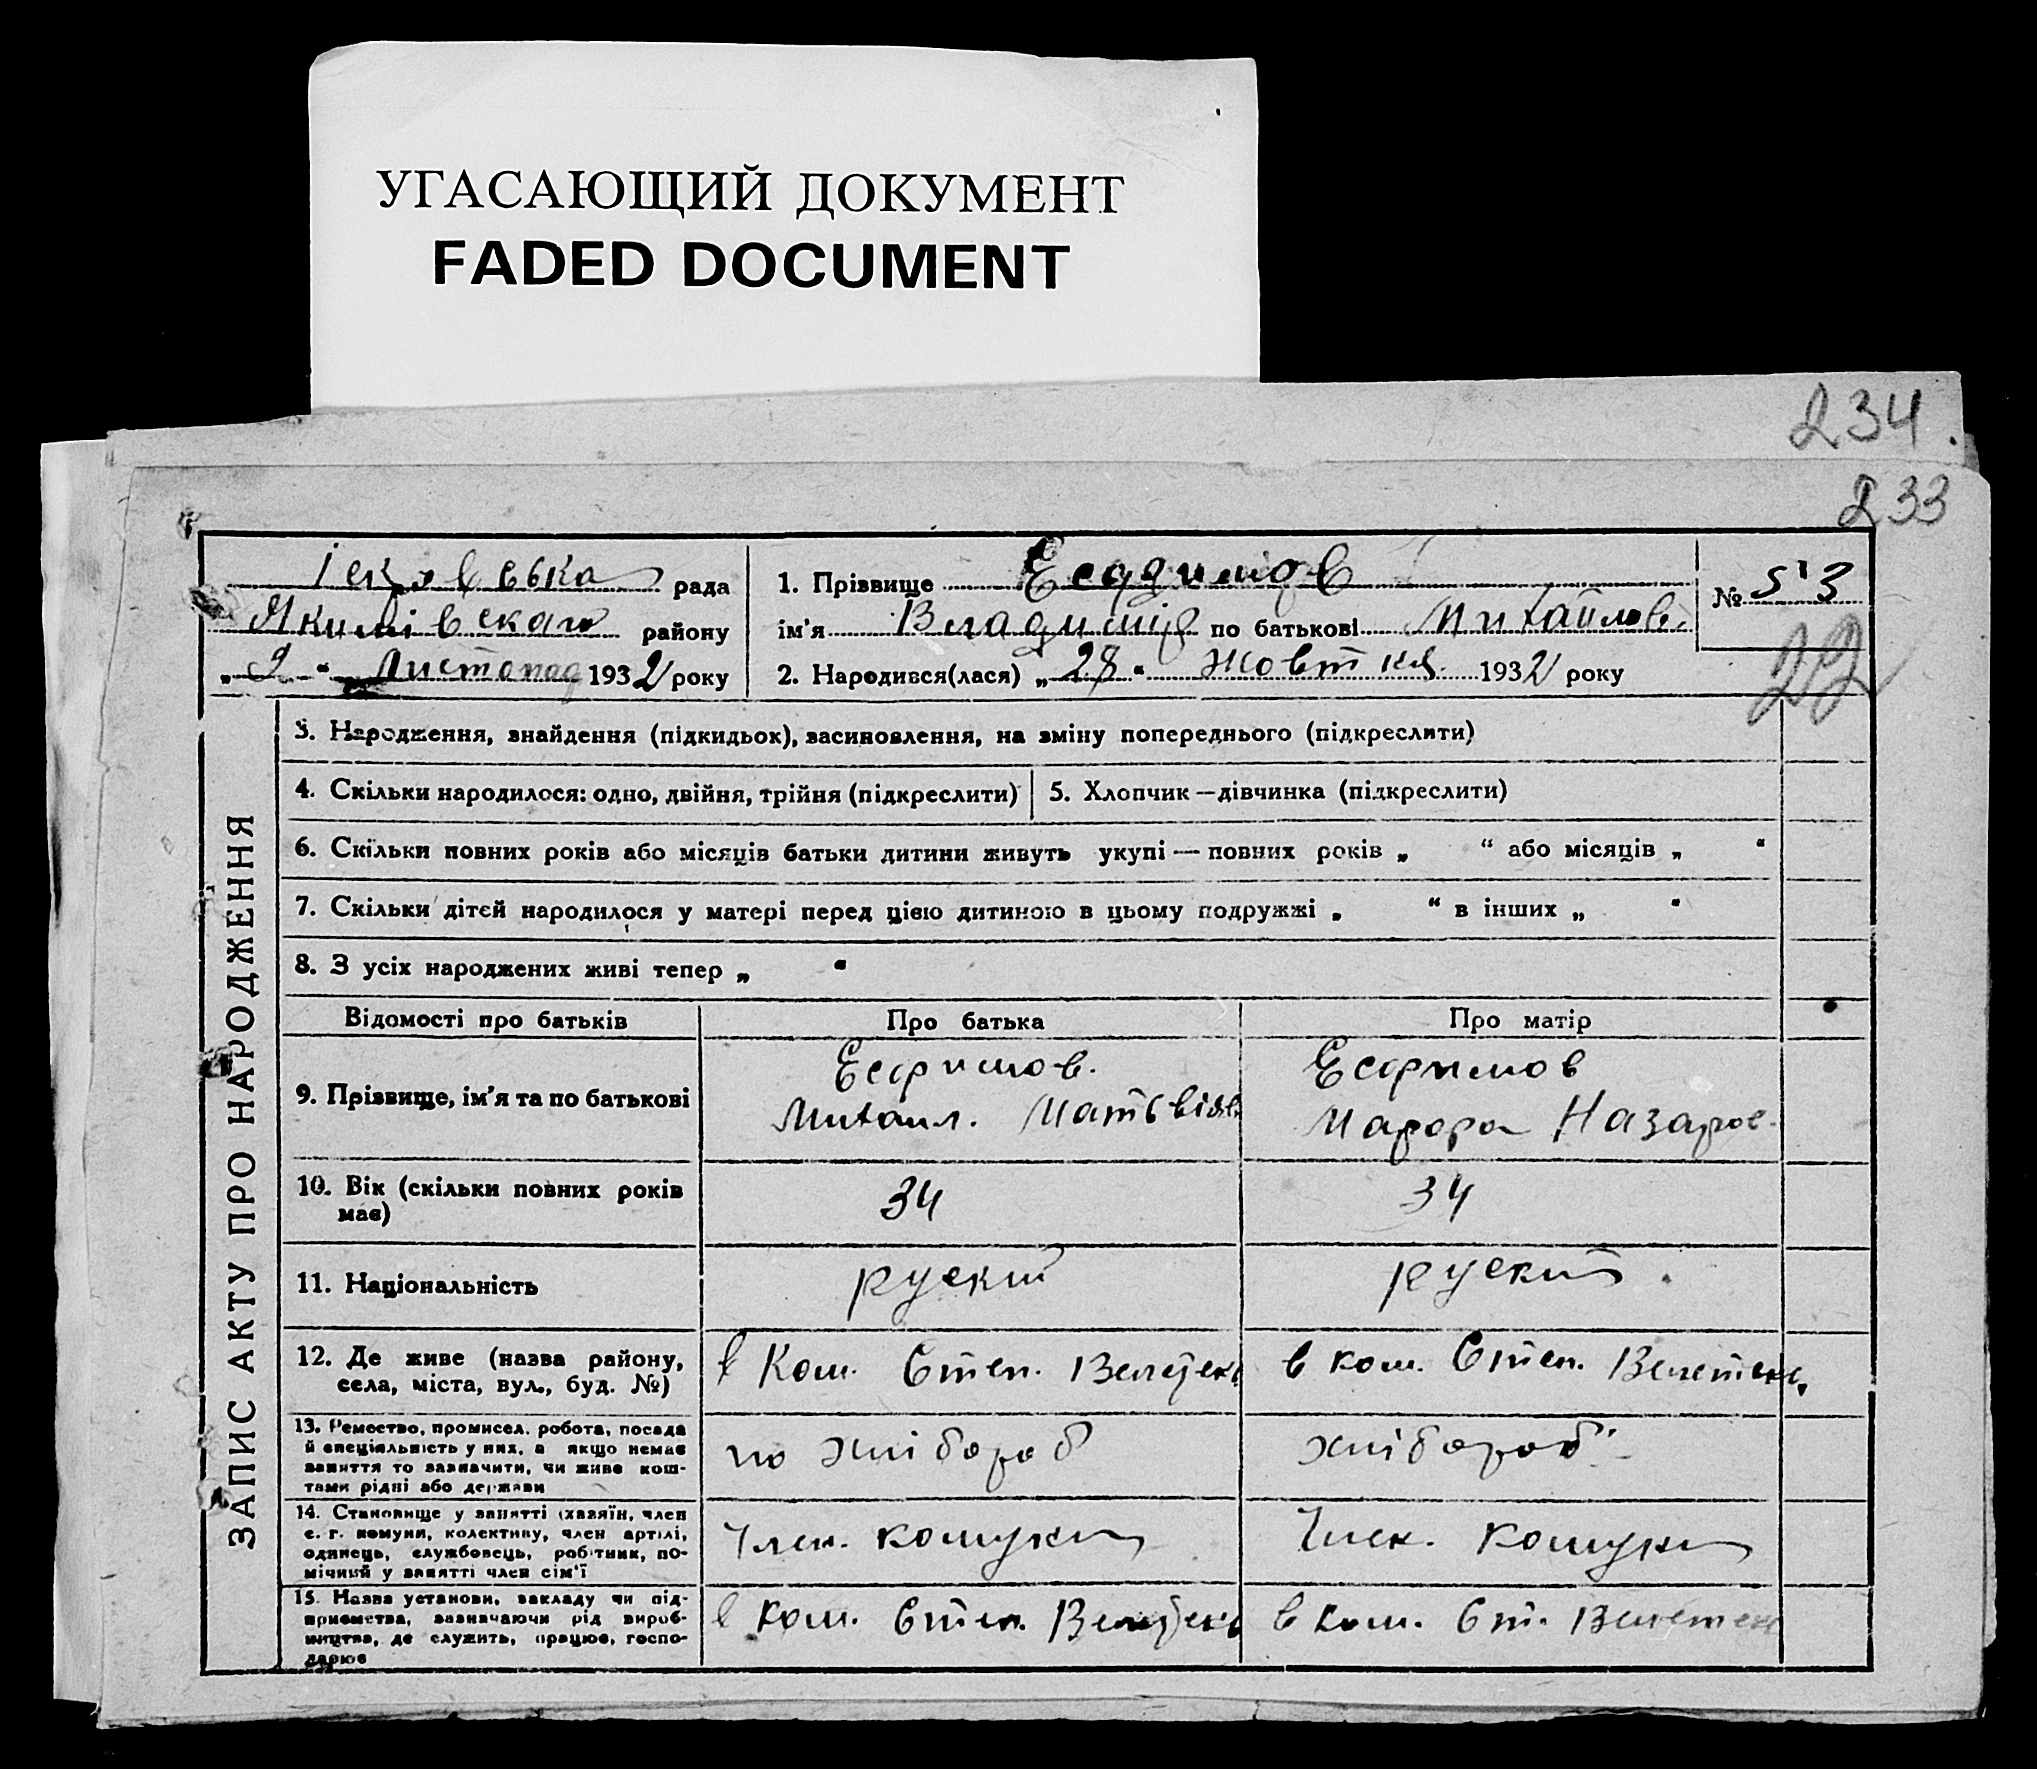 УГАСАЮЩИЙ ДОКУМЕНТ
FADED DOCUMENT
234.
233
рада
района
району
1. Прізвище
№ 53
ім'я Владимір по батькові Михайлов.
22
„2“ Листопад 1932 року
2. Народився(лася) „28“ Жовтня 1932 року
ЗАПИС АКТУ ПРО НАРОДЖЕННЯ
3. Народження, знайдення (підкидьок), засиновлення, на зміну попереднього (підкреслити)
4. Скільки народилося: одно, двійня, трійня (підкреслити)
5. Хлопчик—дівчинка (підкреслити)
6. Скільки повних років або місяців батьки дитини живуть укупі — повних років „ “ або місяців „ “
7. Скільки дітей народилося у матері перед цією дитиною в цьому подружжі „ “ в інших „ “
8. З усіх народжених живі тепер „ “
Відомості про батьків
Про батька
Про матір
9. Прізвище, ім'я та по батькові
Михаил.
Назаров.
10. Вік (скільки повних років має)
34
34
11. Національність
руский
руский
12. Де живе (назва району, села, міста, вул., буд. №)
в Ком. Степ.
в ком. Степ.
13. Ремество, промисел, робота, посада й спеціяльність у них, а якщо немає заняття то зазначити, чи живе коштами рідні або держави
хлібороб
хлібороб
14. Становище у занятті (хазяїн, член с. г. комуни, колективу, член артілі, одинець, службовець, робітник, помічний у занятті член сім'ї
Член. комуни
Член. комуни
15. Назва установи, закладу чи підприємства, зазначаючи рід виробництва, де служить, працює, господарює
в ком. Степ.
в ком. Ст.